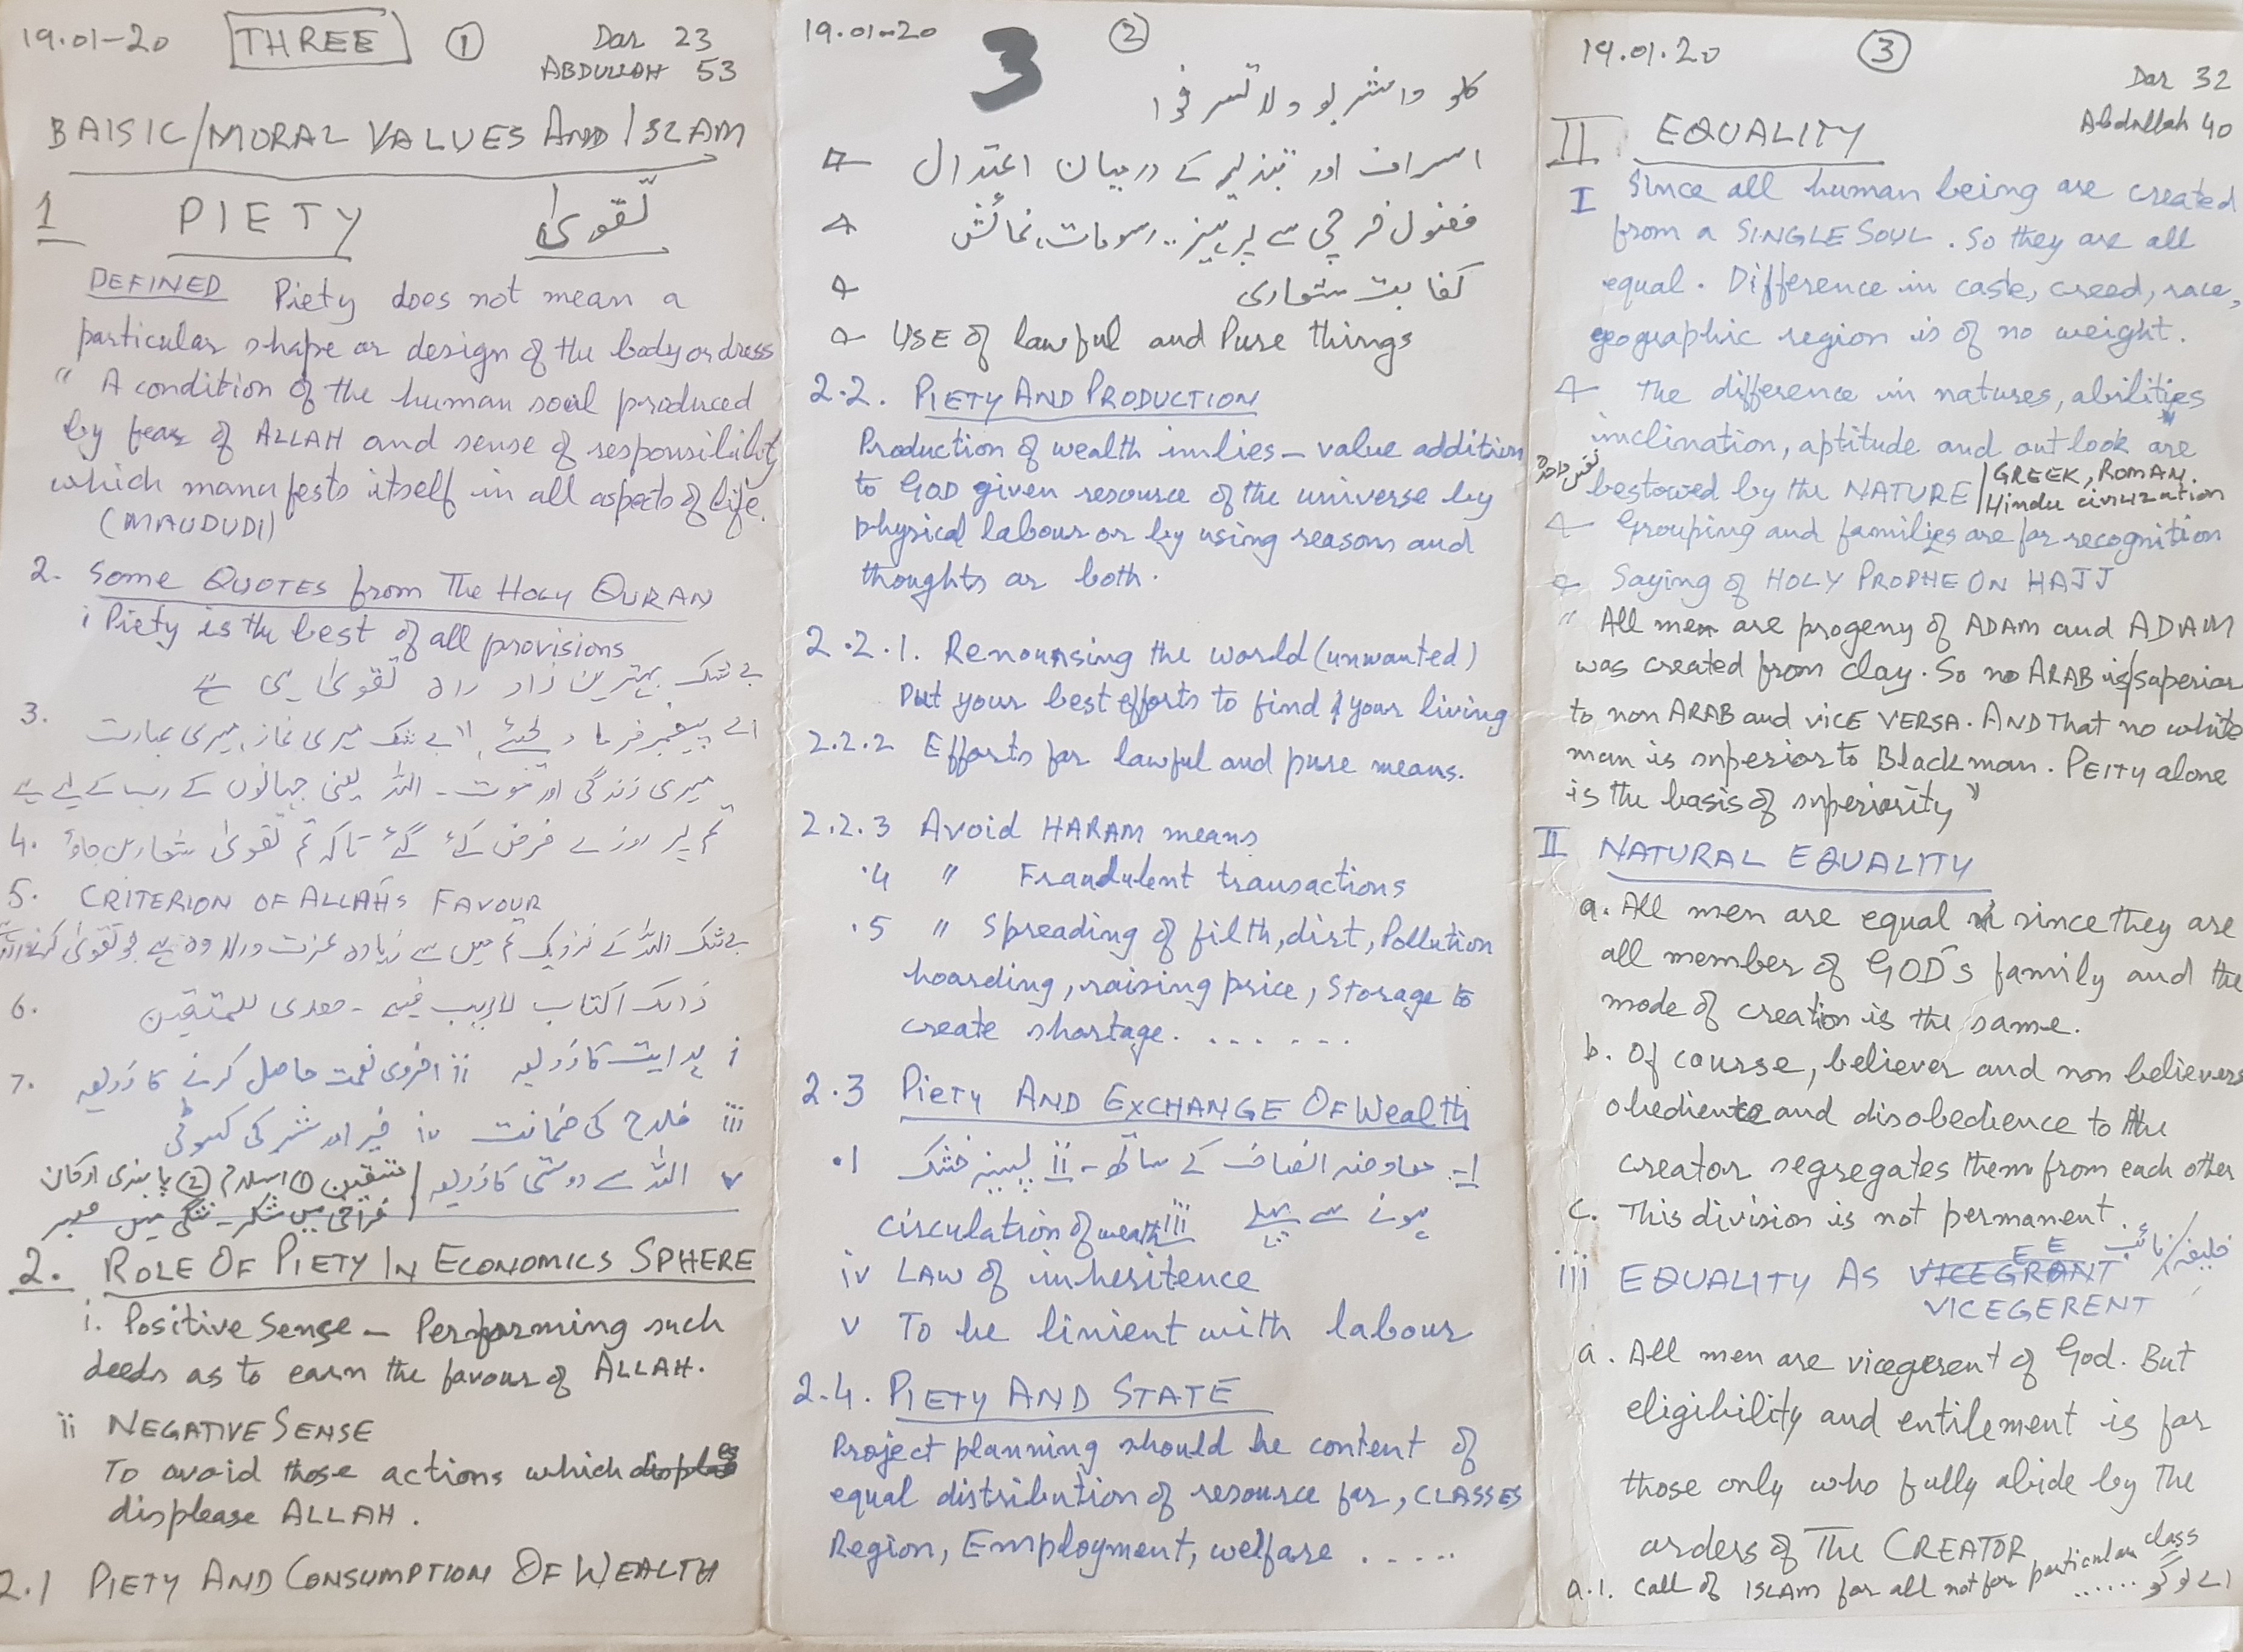 19.01-20 THREE ① Dar 23
ABDULLAH 53
BAISIC/MORAL VALUES AND ISLAM
1 PIETY تقویٰ
DEFINED Piety does not mean a
particular shape or design of the body or dress
" A condition of the human soul produced
by fear of ALLAH and sense of responsibility
which manufests itself in all aspects of life.
(MAUDUDI)
2. Some QUOTES from The HOLY QURAN
i Piety is the best of all provisions
بے شک بہترین زاد راہ تقویٰ ہی ہے
3. اے پیغمبر فرما دیجئے، بے شک میری نماز، میری عبادت
میری زندگی اور موت - اللہ یعنی جہانوں کے رب کے لیے ہے
4. تم پر روزے فرض کئے گئے تاکہ تم تقویٰ شعار بن جاؤ
5. CRITERION OF ALLAH'S FAVOUR
بے شک اللہ کے نزدیک تم میں سے زیادہ عزت والا وہ ہے جو تقویٰ
6. ذالک اکتاب لاریب فیہ - ھدی للمتقین
7. i ہدایت کا ذریعہ ii اخروی نعمت حاصل کرنے کا ذریعہ
iii فلاح کی ضمانت iv خیر اور شر کی کسوٹی
v اللہ سے دوستی کا ذریعہ / متقین ① اسلام ② پابندی ارکان
فراخی میں شکر - تنگی میں صبر
2. ROLE OF PIETY IN ECONOMICS SPHERE
i. Positive Sense - Performing such
deeds as to earn the favour of ALLAH.
ii NEGATIVE SENSE
To avoid those actions which
displease ALLAH.
2.1 PIETY AND CONSUMPTION OF WEALTH
19.01-20 3 ②
کلو واشربو ولا تسرفوا
اسراف اور تبذیر کے درمیان اعتدال
فضول خرچی سے پرہیز .. رسومات، نمائش
کفایت شعاری
USE Of lawful and Pure things
2.2. PIETY AND PRODUCTION
Production of wealth imlies - value addition
to GOD given resource of the universe by
physical labour or by using reasons and
thoughts or both.
2.2.1. Renounsing the world (unwanted)
Put your best efforts to find your living
2.2.2 Efforts for lawful and pure means.
2.2.3 Avoid HARAM means
.4 " Fraudulent transactions
.5 " Spreading of filth, dirt, Pollution
hoarding, raising price, Storage to
create shortage. . . . . . .
2.3 PIETY AND EXCHANGE OF Wealth
.1 i- معاوضہ انصاف کے ساتھ - ii پسینہ خشک
ہونے سے پہلے iii circulation of wealth
iv LAW of inheritence
v To be linient with labour
2.4. PIETY AND STATE
Project planning should be content of
equal distribution of resource for, CLASSES
Region, Employment, welfare .....
19.01.20 ③ Dar 32
Abdullah 40
II EQUALITY
I Since all human being are created
from a SINGLE SOUL. So they are all
equal. Difference in caste, creed, race,
geographic region is of no weight.
The difference in natures, abilities
inclination, aptitude and out look are
نفس واحدہ bestowed by the NATURE / GREEK, ROMAN.
Hindu civilization
Grouping and families are for recognition
Saying of HOLY PROPHE ON HAJJ
" All men are progeny of ADAM and ADAM
was created from clay. So no ARAB is superior
to non ARAB and VICE VERSA. AND That no white
man is superior to Black man. PEITY alone
is the basis of superiority"
II NATURAL EQUALITY
a. All men are equal since they are
all member of GOD's family and the
mode of creation is the same.
b. Of course, believer and non believers
obedience and disobedience to the
creator segregates them from each other
c. This division is not permanent.
iii EQUALITY AS VICEGRANT خلیفہ/نائب
VICEGERENT
a. All men are vicegerent of God. But
eligibility and entilement is for
those only who fully abide by The
orders of The CREATOR
a.1. Call of ISLAM for all not for particular class
...... اے لوگو